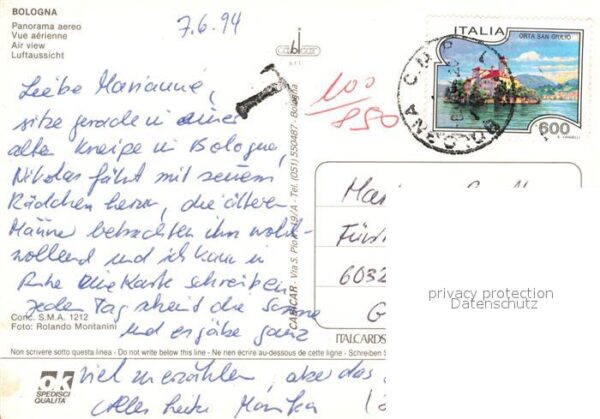 BOLOGNA
Panorama aereo
Vue aérienne
Air view
Luftaussicht
7.6.94
cabicar
ITALIA
ORTA SAN GIULIO
600
BOLOGNA C.M.P.
T
100
/850
Liebe Marianne,
sitze gerade in einer
alten Kneipe in Bologna,
Nikolas fährt mit seinem
Rädchen herum, die älteren
Männer betrachten ihn wohl-
wollend und ich kann in
Ruhe eine Karte schreiben
jeden Tag scheint die Sonne
und es gäbe ganz
viel zu erzählen, aber das
Alles Liebe Monika
Conc. S.M.A. 1212
Foto: Rolando Montanini
CABICAR - Via S. Pio V, 19/A - Tel. (051) 550487 - Bologna
Mar
Fürs
6032
G
privacy protection
Datenschutz
ITALCARDS
Non scrivere sotto questa linea - Do not write below this line - Ne rien écrire au-dessous de cette ligne - Schreiben S
ok
SPEDISCI
QUALITÀ